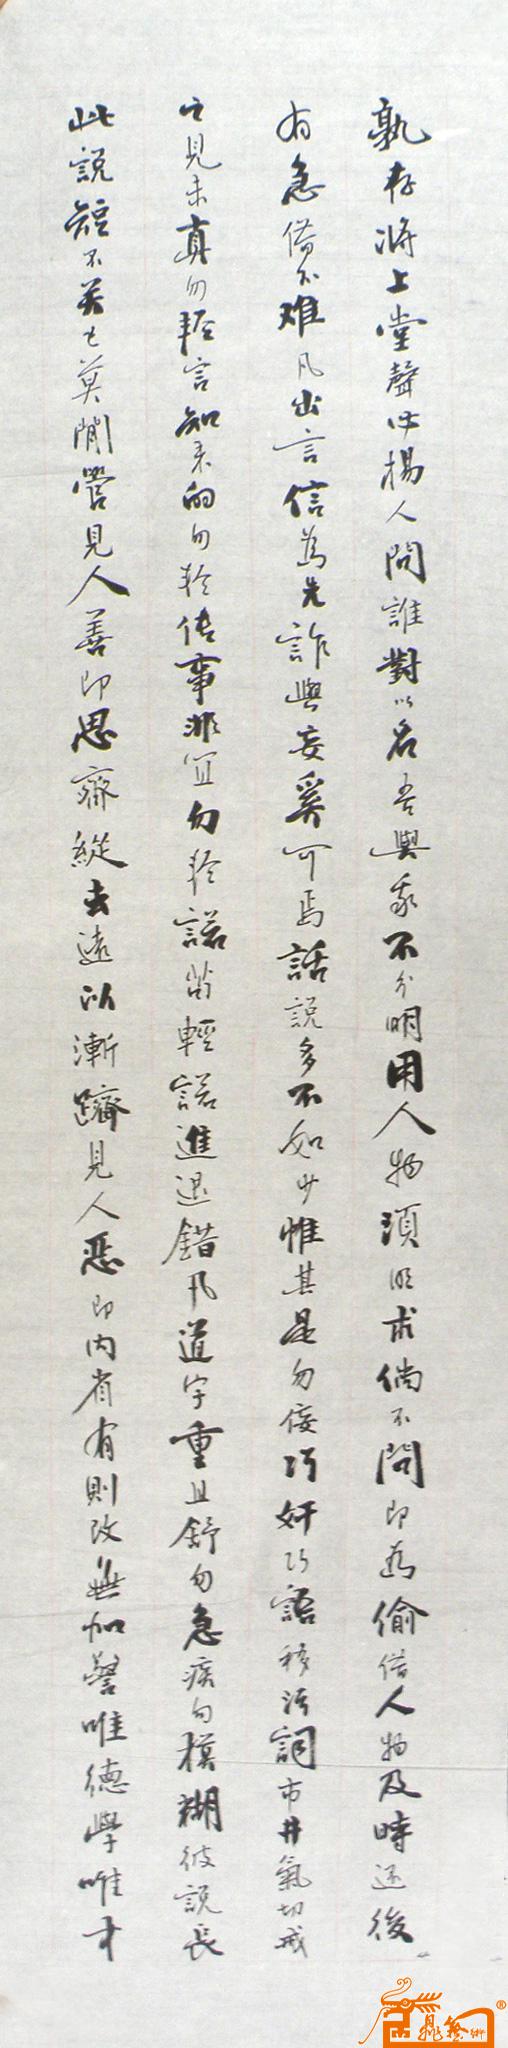 孰存將上堂聲必揚人問誰對以名吾與我不分明用人物須明求倘不問即為偷借人物及時還後
有急借不难凡出言信為先詐與妄奚可焉話說多不如少惟其是勿佞巧奸巧語穢污詞市井氣切戒
之見未真勿輕言知未的勿輕傳事非宜勿輕諾苟輕諾進退錯凡道字重且舒勿急疾勿模糊彼說長
此說短不关己莫閒管見人善即思齊縱去遠以漸躋見人惡即內省有則改無加警唯德學唯才